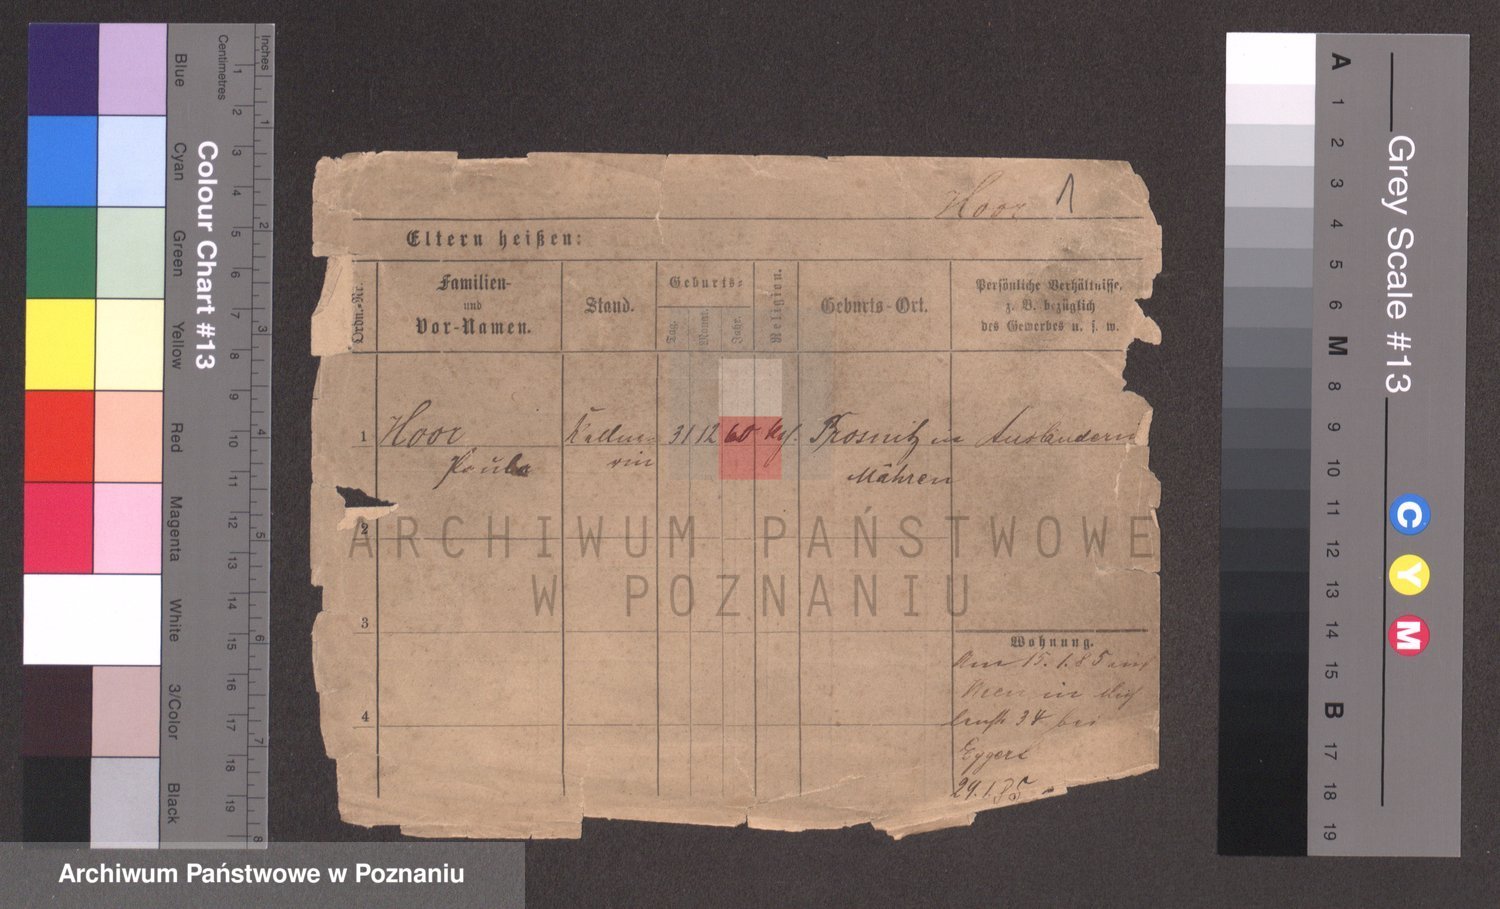 Hoor 1
Eltern heißen:
Ordn.-Nr.
Familien-
und
Vor-Namen.
Stand.
Geburts-
Tag.
Monat.
Jahr.
Religion.
Geburts-Ort.
Persönliche Verhältnisse,
z. B. bezüglich
des Gewerbes u. s. w.
1 Hoor Kellne- 31 12 60 Prosnitz in Ausländerin
Paula rin Mähren
2
3
4
Wohnung.
15. 1. 85
in
34 bei
Eggert
29.1.85
ARCHIWUM PAŃSTWOWE
W POZNANIU
Archiwum Państwowe w Poznaniu
Colour Chart #13
Blue
Cyan
Green
Yellow
Red
Magenta
White
3/Color
Black
Centimetres
Inches
1 2 3 4 5 6 7 8 9 10 11 12 13 14 15 16 17 18 19
1 2 3 4 5 6 7 8
Grey Scale #13
A 1 2 3 4 5 6 M 8 9 10 11 12 13 14 15 B 17 18 19
C
Y
M